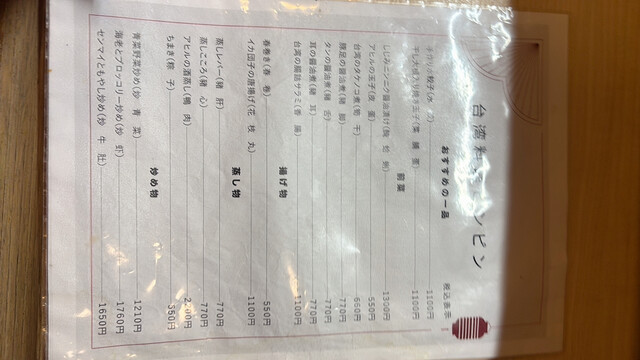 台湾料 ンビン
税込表示
おすすめの一品
手作り水餃子(水 1100円
干し大根入り焼き玉子(菜 脯 蛋) 1100円
前菜
しじみニンニク醤油漬け( 蛤 1300円
アヒルの玉子(皮 蛋) 550円
台湾のタケノコ煮(筍 干) 660円
豚足の醤油煮(猪 脚) 770円
タンの醤油煮(猪 舌) 770円
耳の醤油煮(猪 耳) 770円
台湾の腸詰サラミ(香 腸) 1100円
揚げ物
春巻き(春 巻) 550円
イカ団子の唐揚げ(花 枝 丸) 1100円
蒸し物
蒸しレバー(猪 肝) 770円
蒸しこころ(猪 心) 770円
アヒルの酒蒸し(鴨 肉)
ちまき(粽 子) 550円
炒め物
青菜野菜炒め(炒 青 菜) 1210円
海老とブロッコリー炒め(炒 虾) 1760円
センマイともやし炒め(炒 牛 肚) 1650円